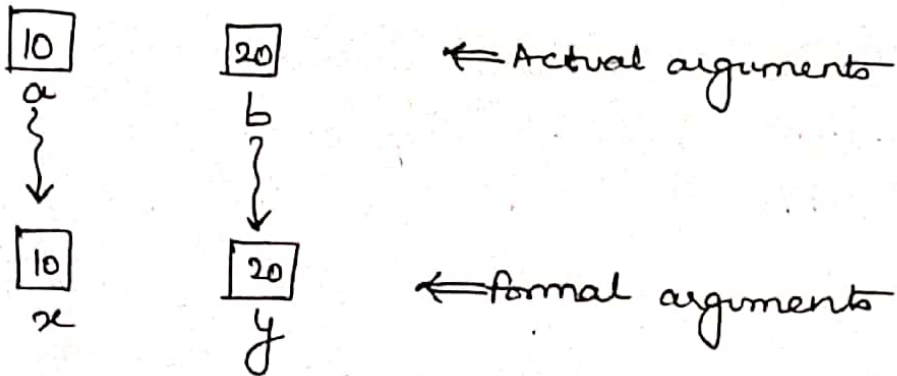 10 20 ⇐ Actual arguments
a b
10 20 ⇐ formal arguments
x y